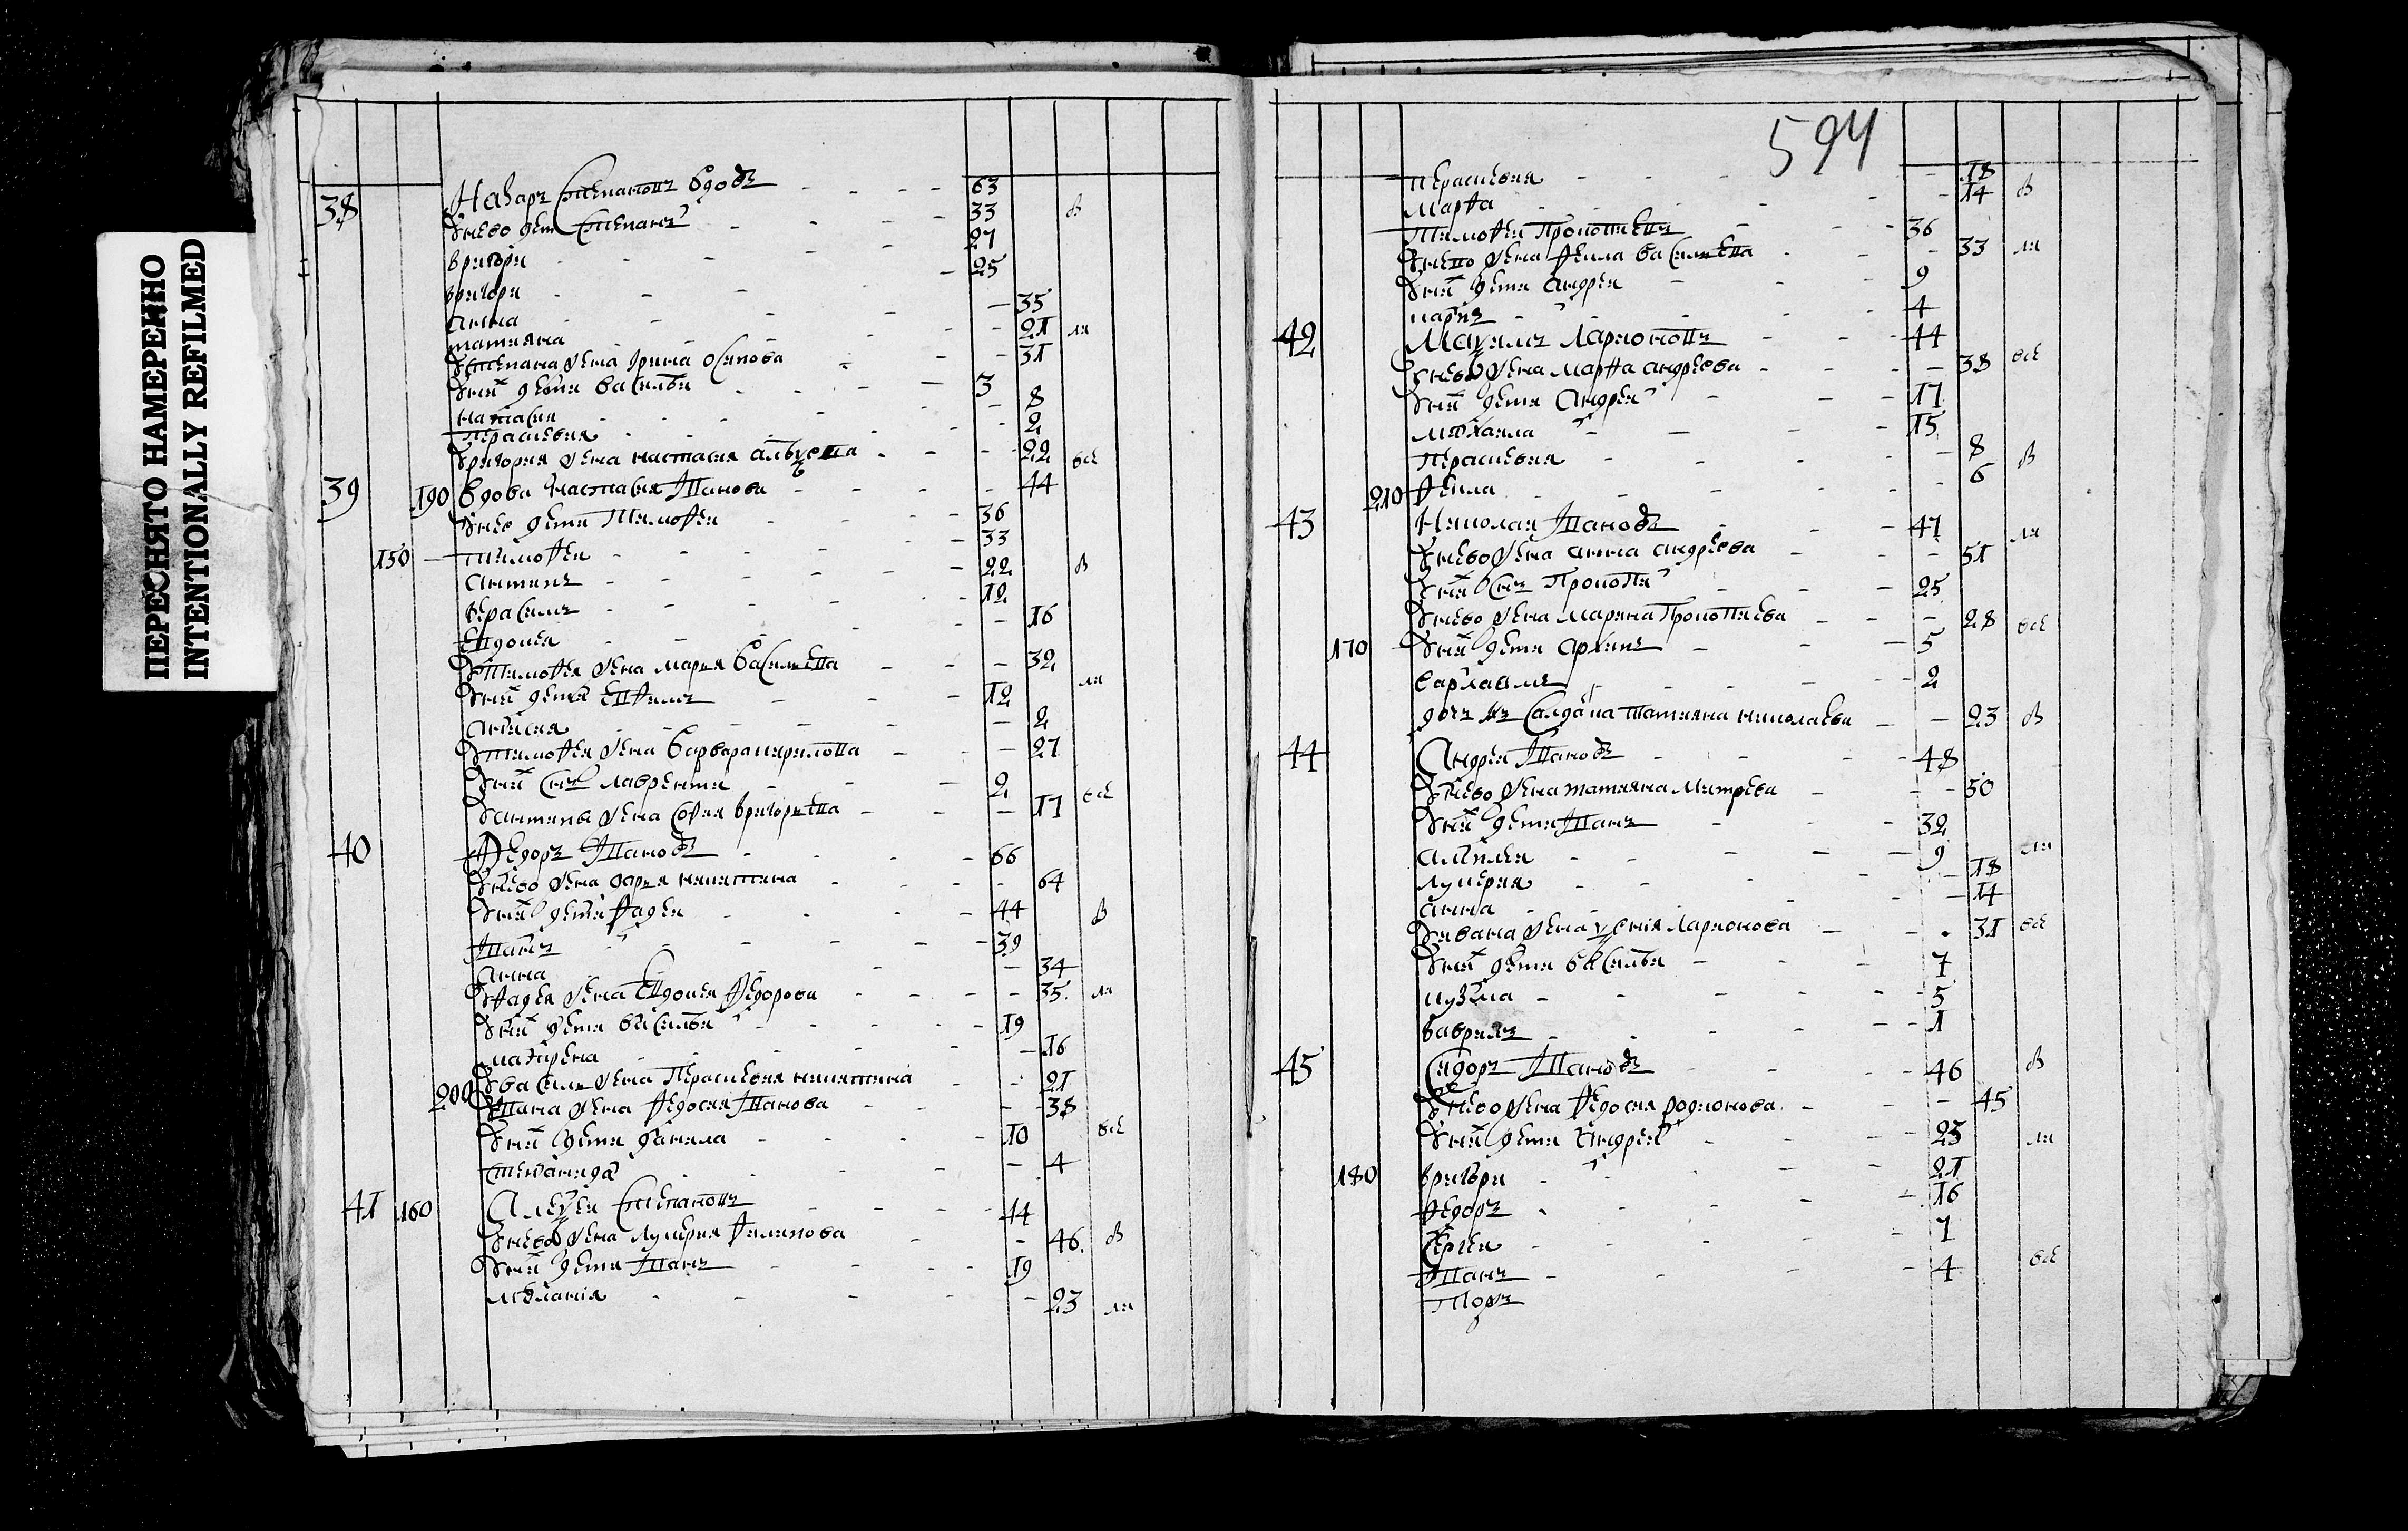 ПЕРЕСНЯТО НАМЕРЕННО
INTENTIONALLY REFILMED
38 Назаръ Степановъ вдовъ 63
У него дети Степанъ 33 в
Григори 27
Григори 25
Анна 35
татияна 21 ли
У Степана жена Ірина Осипова 31
У них дети Василеи 3
настасия 8
Парасковия 2
У Григория жена настасия 22 все
39 190 Вдова Настасия Иванова 44
У нее дети Тимофеи 36
150 Тимофеи 33
Антипъ 22 в
Герасимъ 12
Евдокия 16
У Тимофея жена Мария Василиева 32
У них дети Ефимъ 12 ли
Анисия 2
У Тимофея жена Варвара кирилова 27
У них сынъ лаврентеи 2
У антипы жена София Григориева 17 все
40 Федоръ Ивановъ 66
У него жена дария никитина 64
У них дети Фадеи 44 в
Иванъ 39
Анна 34
У Фадея жена Евдокия Федорова 35 ли
У них дети Василеи 19
матрена 16
200 У Василия жена Парасковия никитина 21
У Ивана жена Федосия Иванова 38
У них дети данила 10 все
Степанида 4
41 160 Алексеи Степановъ 44
У него жена лукерия Филипова 46 в
У них дети Иванъ 19
меланія 23 ли
594
Парасковия 18
Марфа 14 в
Тимофеи Прокопиевъ 36
У него жена Фекла Василиева 33 ли
У них дети андреи 9
карпъ 4
42 Макимъ Ларионовъ 44
У него жена Марфа андреева 38 все
У них дети Андреи 17
михаила 15
Парасковия 8
210 Фекла 6 в
43 Николаи Ивановъ 47
У него жена анна андреева 51 ли
У них сынъ Прокопи 25
У него жена Марина Прокопиева 28 все
170 У них дети архипъ 5
варлаамъ 2
дочь Татияна николаева 23 в
44 Андреи Ивановъ 48
У него жена татияна Митрева 50
У них дети Иванъ 32
Алексеи 9 ли
лукерия 18
анна 14
У ивана жена Ларионова 31 все
У них дети Василеи 7
кузма 5
Гаврилъ 1
45 Сидоръ Ивановъ 46 в
У него жена Федосия родионова 45
У них дети Андреи 23 ли
180 Григори 21
Федоръ 16
Сергеи 7
Иванъ 4 все